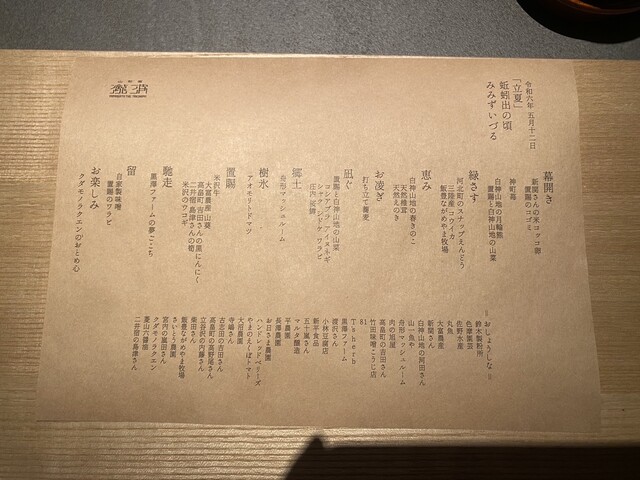 令和六年 五月十二日
「立夏」
蚯蚓出の頃
みみずいづる
幕開き
新関さんの米コッコ卵
置賜のコゴミ
神町苺
白神山地の月輪熊
置賜と白神山地の山菜
緑さす
河北町のスナップえんどう
三陸産コウイカ
飯豊ながめやま牧場
恵み
白神山地の春きのこ
天然椎茸
天然えのき
お凌ぎ
打ち立て蕎麦
凪ぐ
置賜と白神山地の山菜
コシアブラ アイヌネギ
シャク シドケ ワラビ
庄内 浅蜊
郷土
舟形マッシュルーム
樹氷
アオモリトドマツ
置賜
米沢牛
大富農産 山葵
高畠町 吉田さんの黒にんにく
二井宿 島津さんの筍
米沢のウコギ
馳走
黒澤ファームの夢ごこち
留
自家製味噌
置賜のワラビ
お楽しみ
クダモノラクエンのおとめ心
= おしょうしな =
鈴木製粉所
色摩菓芸
佐野水産
丸魚
大富農産
新関さん
白神山地の阿田さん
山一魚や
舟形マッシュルーム
肉の旭屋
高畠町の吉田さん
竹田味噌こうじ店
81
T's herb
黒澤ファーム
渡沢さん
小林豆腐店
新芋食品
五十嵐さん
マルタ醸造
平農園
長澤農園
お日さま農園
ハンドレッドベリーズ
やまのべえーぽトマト
大沼農吉
寺嶋さん
古志田の吉田さん
高畠町の高野尾さん
立谷沢の内藤さん
柴田さん
飯豊ながめやま牧場
さいとう農園
宮内の嵐田さん
クダモノラクエン
蔓山六醤畑
二井宿の島津さん